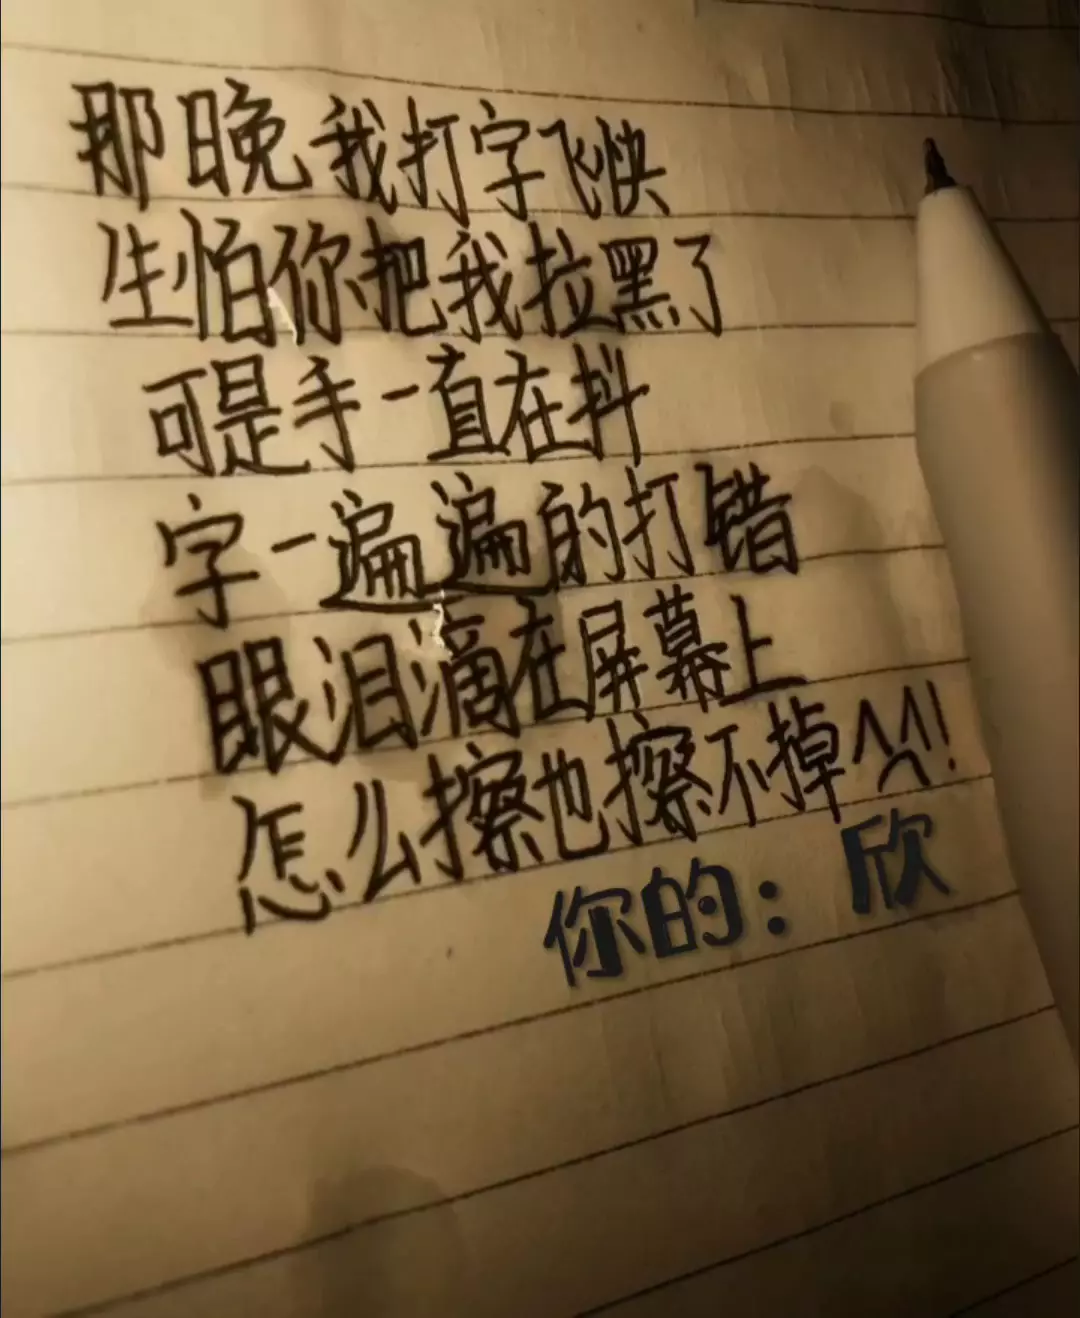 那晚我打字飞快
生怕你把我拉黑了
可是手一直在抖
字一遍遍的打错
眼泪滴在屏幕上
怎么擦也擦不掉^^!
你的：欣